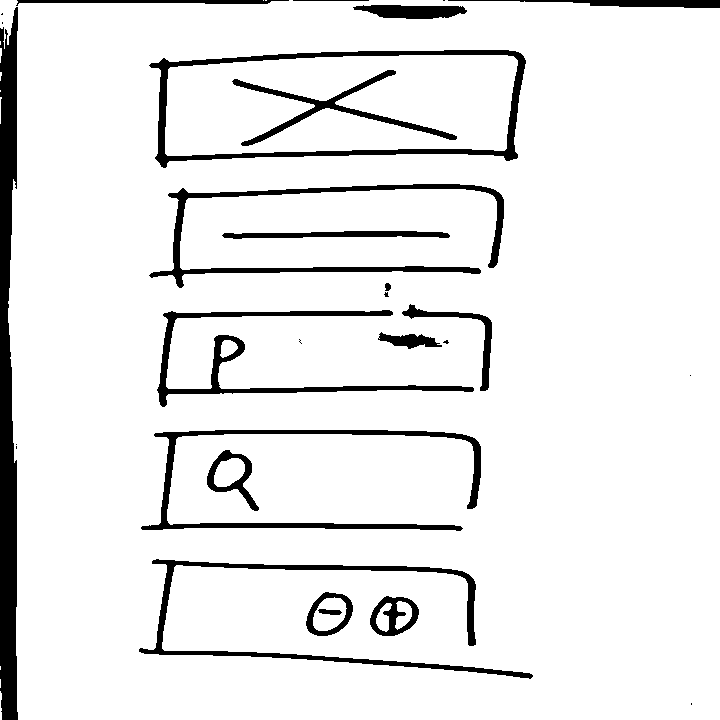 P
Q
⊖ ⊕